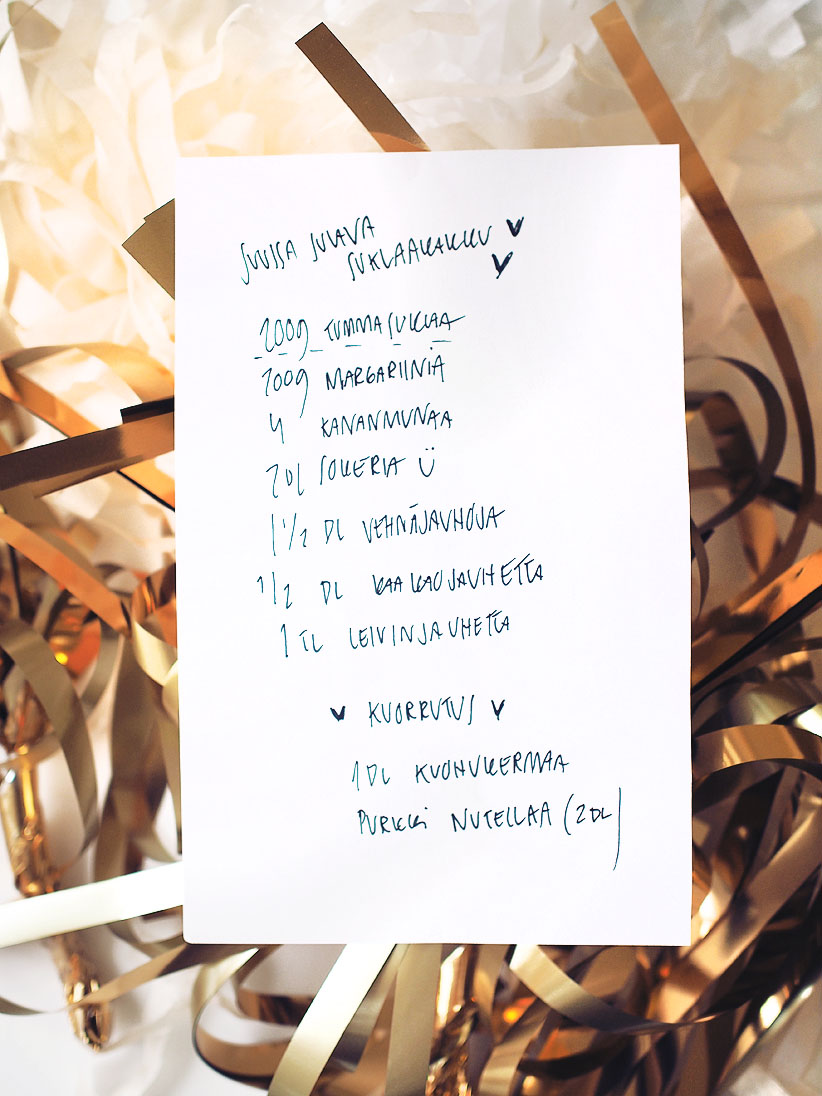 SUUSSA SULAVA
SUKLAAKAKKU
200g TUMMA SUKLAA
200g MARGARIINIA
4 KANANMUNAA
2 DL SOKERIA Ü
1 1/2 DL VEHNÄJAUHOJA
1/2 DL KAAKAOJAUHETTA
1 TL LEIVINJAUHETTA
KUORRUTUS
1 DL KUOHUKERMAA
PURKKI NUTELLAA (2 DL)